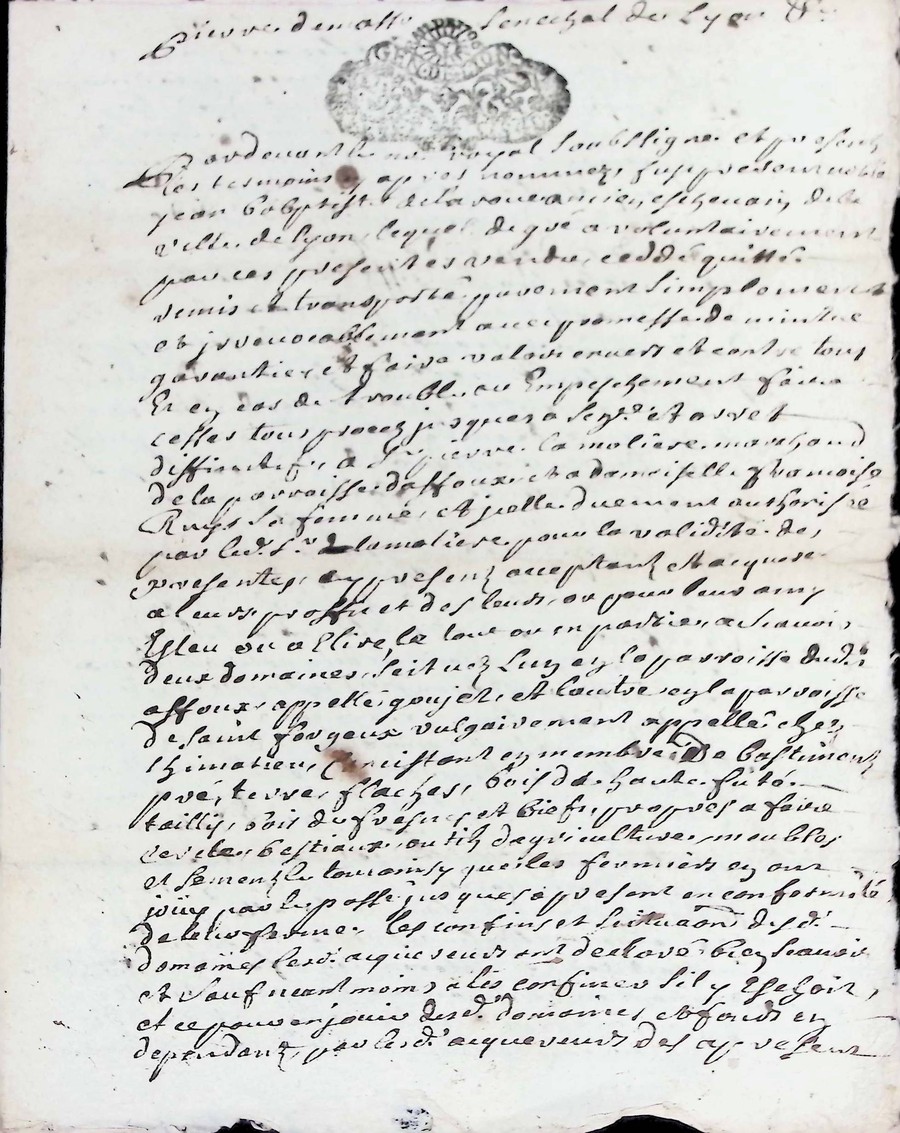 Pierre demasso Senechal de Lyon &c
GEN DE LION
Pardevant le no.re royal Soubssigne et presents
les tesmoins cy apres nommez fust present noble
jean baptiste delaroue ancien eschevain de la
ville de lyon lequel de gré a volontairement
par ces presentes vendu, ceddé quitté
remis et transporté purement simplement
et jrrevocablement avec promesse de maintenir
garantir et faire valoir envers et contre tous
Et en cas de trouble ou Empeschement faire
cesser tous procez jusques a sen.ce et arrest
diffinitif, a s.r pierre lamoliere marchand
de la parroisse daffoux et a damoiselle francoise
sa femme et jcelle duement authorisée
par led. s.r delamoliere pour la validité des
presentes, cy presents acceptant et acquerant
a leurs proffit et des leurs, ou pour leur amy
Esleu ou a Elire le tout ou en partie, a scavoir
deux domaines scituez l'un en la parroisse dud.
affoux appellé goujet, et lautre en la parroisse
de saint forgeux vulgairement appellé chez
thimonier, Consistant en membre De bastiments
pré, terre flaches, bois de haute futé
taillis, bois de fresne, et biefs propres a faire
bestiaux outils dagriculture, meubles
et semences le tout ainsy que les fermiers en ont
jouy par le passé jusques a present en conformité
de leur ferme, les confins et scituaon desd.
domaines lesd. acquereurs ont declaré bien scavoir
et sauf neantmoins a les confiner sil y Eschoit,
et ce pour en jouir desd. domaines et fonds en
dependants, par lesd. acquereurs des a present